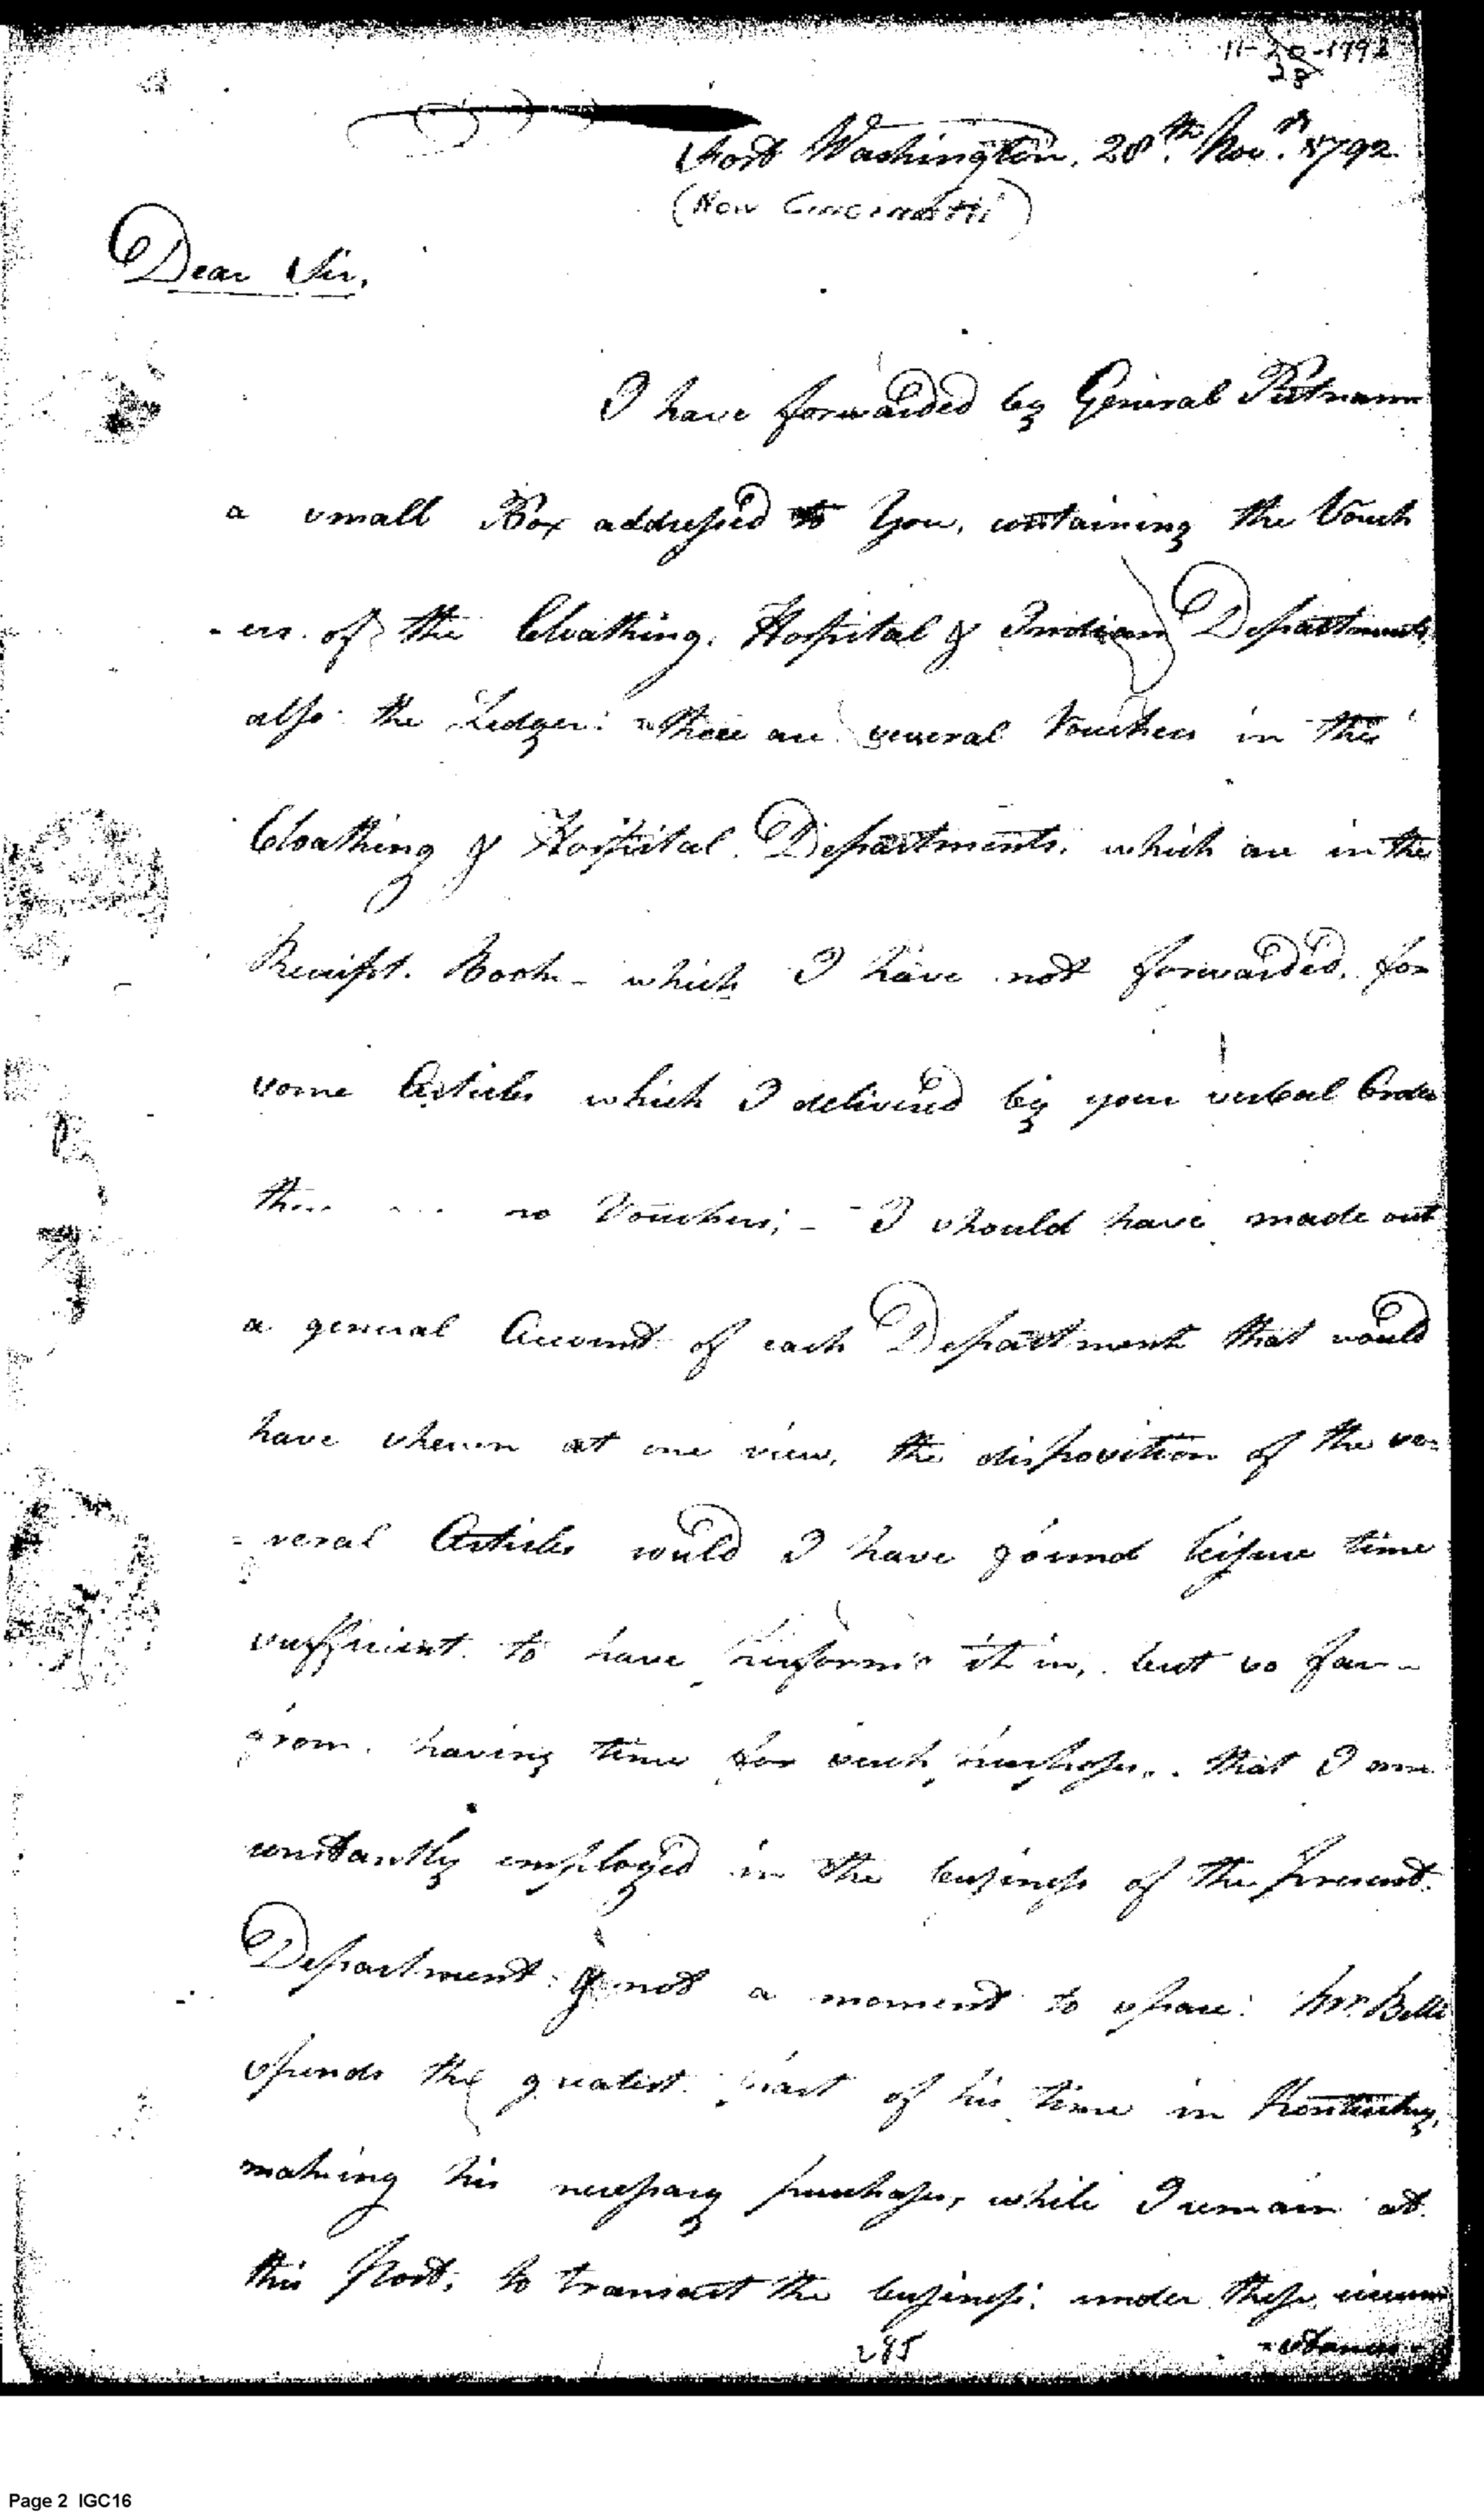 11-20-1792
28
Fort Washington, 28th. Novr. 1792
(Now Cincinatti)
Dear Sir,
I have forwarded by General Putnam
a small Box addressed to You, containing the Vouch
-ers of the Cloathing, Hospital & Indian Departments,
also the Ledger: there are several Vouchers in the
Cloathing & Hospital Departments, which are in the
Receipt Book - which I have not forwarded, for
some Articles which I delivered by your verbal Order
no Vouchers; - I should have made out
a general Account of each Department that would
have shewn at one view, the disposition of the se-
=veral Articles could I have found leisure time
sufficient to have perform'd it in, but so far -
from having time for such purposes, that I am
constantly employed in the business of the present
Department & not a moment to spare: Mr. Belli
spends the greatest part of his time in Kentucky,
making his necessary purchases, while I remain at
this Post, to transact the business; under these circum
-stances-
285
Page 2 IGC16